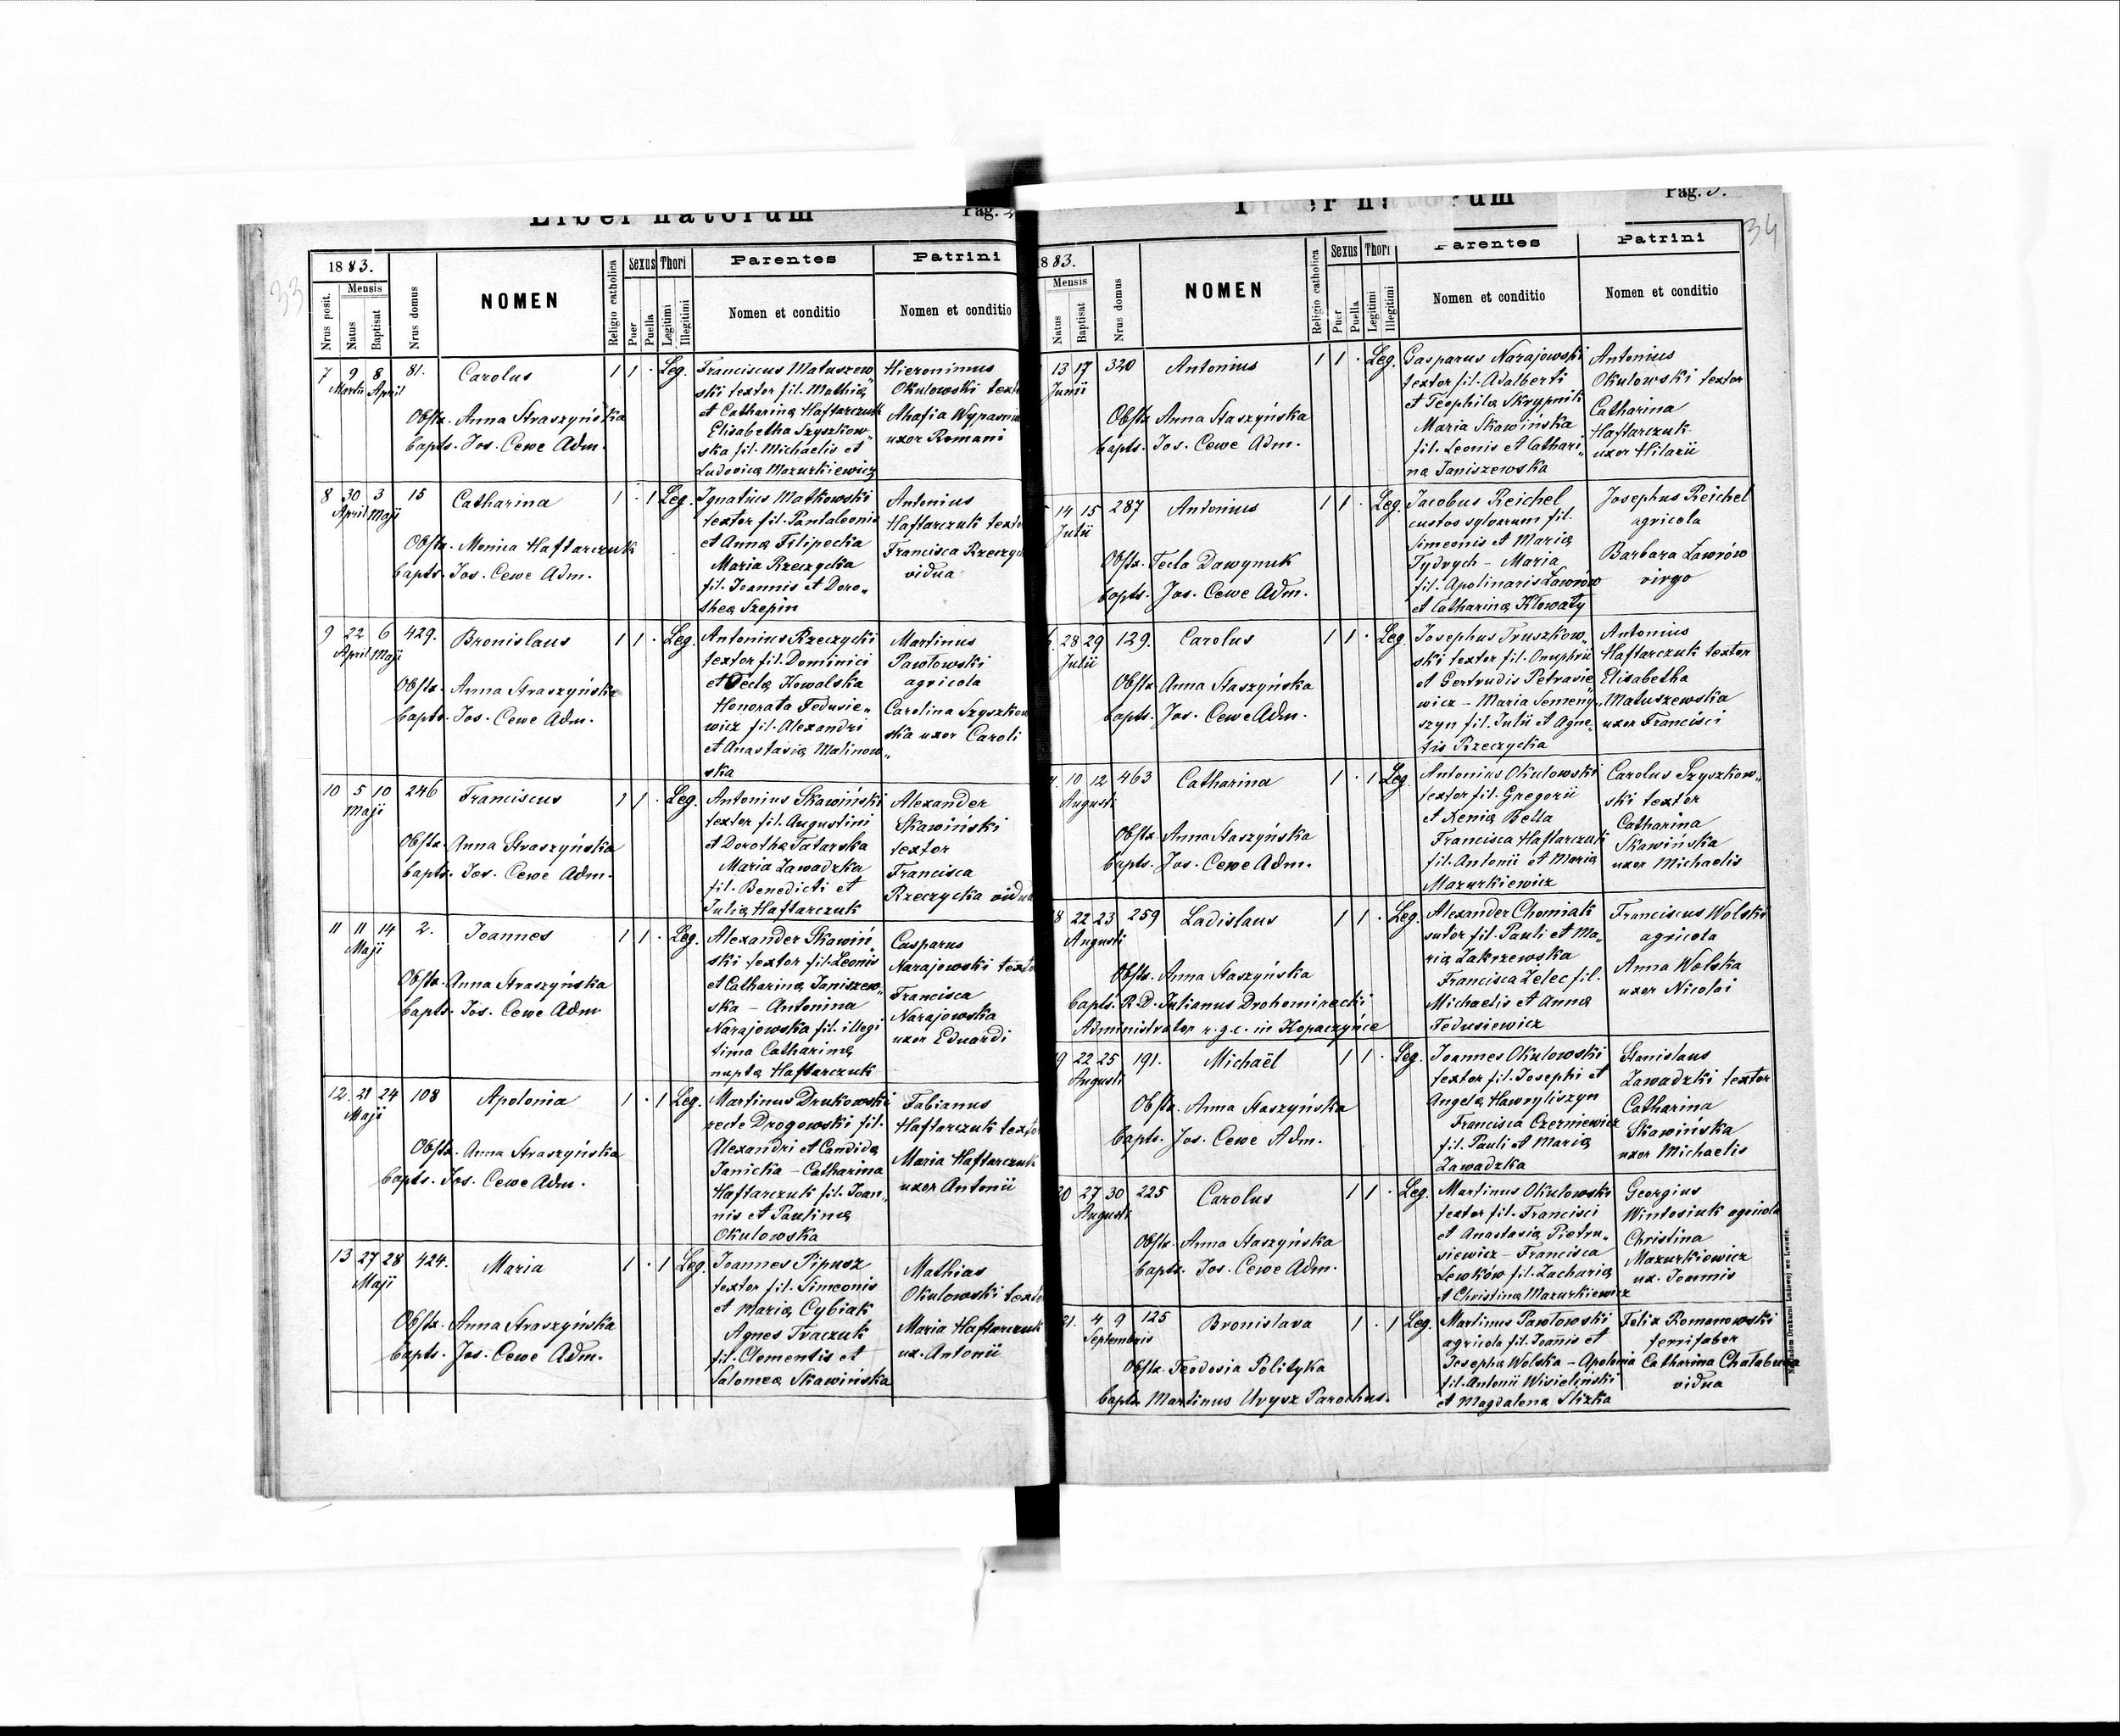 Liber natorum
Pag. 2
33
1883.
Nrus posit.
Mensis
Natus
Baptisat
Nrus domus
NOMEN
Religio catholica
Sexus
Puer
Puella
Thori
Legitimi
Illegitimi
Parentes
Nomen et conditio
Patrini
Nomen et conditio
7 9 8 81. Carolus 1 1 . Leg. Franciscus Matuszew„ Hieronimus
Martii April ski textor fil. Mathiæ Okulowski
et Catharina Haftarczuk Ahafia
Obstx. Anna Straszyńska Elisabetha Szyszkow„ uxor Romani
bapts. Jos. Cewe Adm. ska fil. Michaelis et
Ludovica Mazurkiewicz
8 30 3 15 Catharina 1 . 1 Leg. Ignatius Matkowski Antonius
April Maji textor fil. Pantaleonis Haftarczuk
Obstx. Monica Haftarczuk et Anna Filipecka Francisca
bapts. Jos. Cewe Adm. Maria Rzeczycka vidua
fil. Joannis et Doro„
thea Szepin
9 22 6 429. Bronislaus 1 1 . Leg. Antonius Rzeczycki Martinus
April Maji textor fil. Dominici Pawłowski
et Tecla Kowalska agricola
Obstx. Anna Straszyńska Honorata Fedusie„ Carolina
bapts. Jos. Cewe Adm. wicz fil. Alexandri ska uxor Caroli
et Anastasia Malinow„
ska
10 5 10 246 Franciscus 1 1 . Leg. Antonius Skawiński Alexander
Maji textor fil. Augustini Skawiński
Obstx. Anna Straszyńska et Dorotha Tatarska textor
bapts. Jos. Cewe Adm. Maria Zawadzka Francisca
fil. Benedicti et Rzeczycka vidua
Julia Haftarczuk
11 11 14 2. Joannes 1 1 . Leg. Alexander Skawiń„ Casparus
Maji ski textor fil. Leonis Narajowski
Obstx. Anna Straszyńska et Catharina Janiszew„ Francisca
bapts. Jos. Cewe Adm ska – Antonina Narajowska
Narajowska fil. illegi uxor Eduardi
tima Catharina
nupta Haftarczuk
12. 21 24 108 Apolonia 1 . 1 Leg. Martinus Drukowski Fabianus
Maji recte Drogowski fil. Haftarczuk
Obstx. Anna Straszyńska Alexandri et Candida Maria Haftarczuk
bapts. Jos. Cewe Adm. Janicka – Catharina uxor Antonii
Haftarczuk fil. Joan„
nis et Paulina
Okulowska
13 27 28 424. Maria 1 . 1 Leg. Joannes Pipusz Mathias
Maji textor fil. Simeonis Okulowski
Obstx. Anna Straszyńska et Maria Cybiak Maria Haftarczuk
bapts. Jos. Cewe Adm. Agnes Tkaczuk ux. Antonii
fil. Clementis et
Salomea Skawińska
Pag. 3.
34
1883.
Mensis
Natus
Baptisat
Nrus domus
NOMEN
Religio catholica
Sexus
Puer
Puella
Thori
Legitimi
Illegitimi
Parentes
Nomen et conditio
Patrini
Nomen et conditio
13 17 320 Antonius 1 1 . Leg. Casparus Narajowski Antonius
Junii textor fil. Adalberti Okulowski textor
Obstx. Anna Staszyńska et Teophila Skrypnik Catharina
bapts. Jos. Cewe Adm. Maria Skawińska Haftarczuk
fil. Leonis et Cathari„ uxor Hilarii
na Janiszewska
14 15 287 Antonius 1 1 . Leg. Jacobus Reichel Josephus Reichel
Julii custos sylvarum fil. agricola
Obstx. Tecla Dawynuk Simeonis et Maria Barbara Zawrów
bapts. Jos. Cewe Adm. Tydrych – Maria virgo
fil. Apolinaris Zawrów
et Catharina Kłowaty
28 29 129. Carolus 1 1 . Leg. Josephus Truszkow„ Antonius
Julii ski textor fil. Onuphrii Haftarczuk textor
Obstx. Anna Staszyńska et Gertrudis Petrasie Elisabetha
bapts. Jos. Cewe Adm. wicz – Maria Semeny„ Matuszewska
szyn fil. Julii et Agne„ uxor Francisci
tis Rzeczycka
10 12 463 Catharina 1 . 1 Leg Antonius Okulowski Carolus Szyszkow„
Augusti textor fil. Gregorii ski textor
Obstx. Anna Staszyńska et Xenia Bella Catharina
bapts. Jos. Cewe Adm. Francisca Haftarczuk Skawińska
fil. Antonii et Maria uxor Michaelis
Mazurkiewicz
18 22 23 259 Ladislaus 1 1 . Leg. Alexander Chomiak Franciscus Wolski
Augusti sutor fil. Pauli et Ma„ agricola
Obstx. Anna Staszyńska ria Zakrzewska Anna Wolska
bapts. R. D. Julianus Drohomirecki Francisca Zelec fil. uxor Nicolai
Administrator r. g. c. in Kopaczyńce Michaelis et Anna
Fedusiewicz
19 22 25 191. Michaël 1 1 . Leg. Joannes Okulowski Stanislaus
Augusti textor fil. Josephi et Zawadzki textor
Obstx. Anna Staszyńska Angela Hawryliszyn Catharina
bapts. Jos. Cewe Adm. Francisca Czerniewicz Skawińska
fil. Pauli et Maria uxor Michaelis
Zawadzka
20 27 30 225 Carolus 1 1 . Leg. Martinus Okulowski Georgius
Augusti textor fil. Francisci Wintosiuk agricola
Obstx. Anna Staszyńska et Anastasia Pietru„ Christina
bapts. Jos. Cewe Adm. siewicz – Francisca Mazurkiewicz
Lewków fil. Zacharia ux. Joannis
et Christina Mazurkiewicz
21. 4 9 125 Bronislava 1 . 1 Leg. Martinus Pawłowski Felix Romanowski
Septembris agricola fil. Joannis et ferrifaber
Obstx. Teodosia Polityka Josepha Wolska – Apolonia Catharina Chałabuda
bapts. Martinus Urysz Parochus. fil. Antonii Wisieliński vidua
et Magdalena Slizka
Nakładem Drukarni Ludowej we Lwowie.